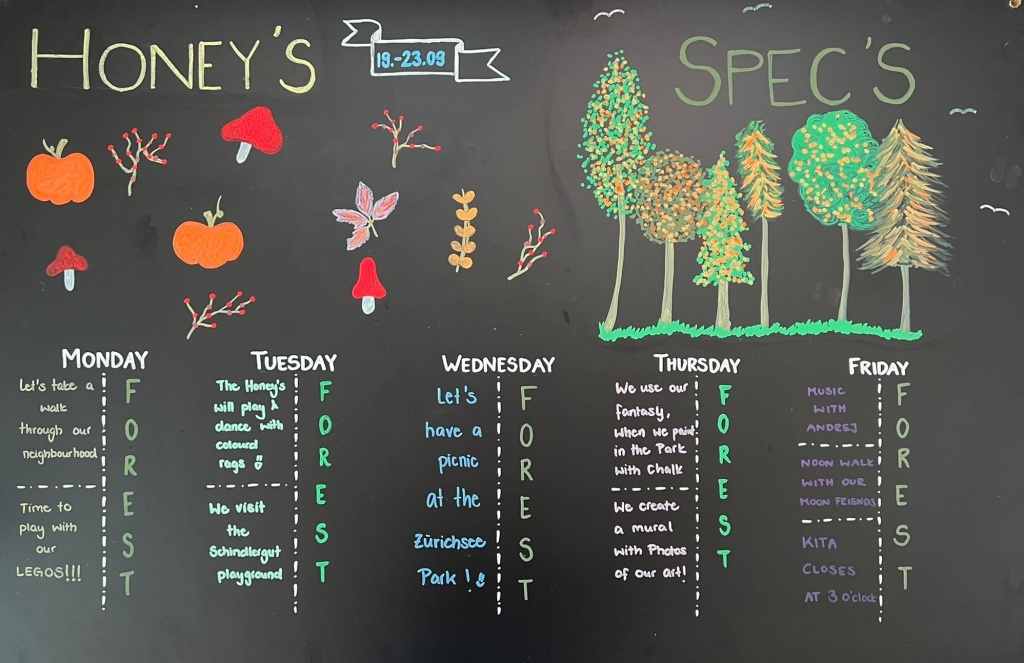 HONEY'S
19.-23.09
SPEC'S
MONDAY
Let's take a
walk
through our
neighbourhood
Time to
play with
our
LEGOS!!!
F
O
R
E
S
T
TUESDAY
The Honey's
will play &
dance with
coloured
rags
We visit
the
Schindlergut
playground
F
O
R
E
S
T
WEDNESDAY
Let's
have a
picnic
at the
Zürichsee
Park!
F
O
R
E
S
T
THURSDAY
We use our
fantasy,
when we paint
in the Park
with Chalk
We create
a mural
with Photos
of our art!
F
O
R
E
S
T
FRIDAY
MUSIC
WITH
ANDREJ
NOON WALK
WITH OUR
MOON FRIENDS
KITA
CLOSES
AT 3 o'clock
F
O
R
E
S
T